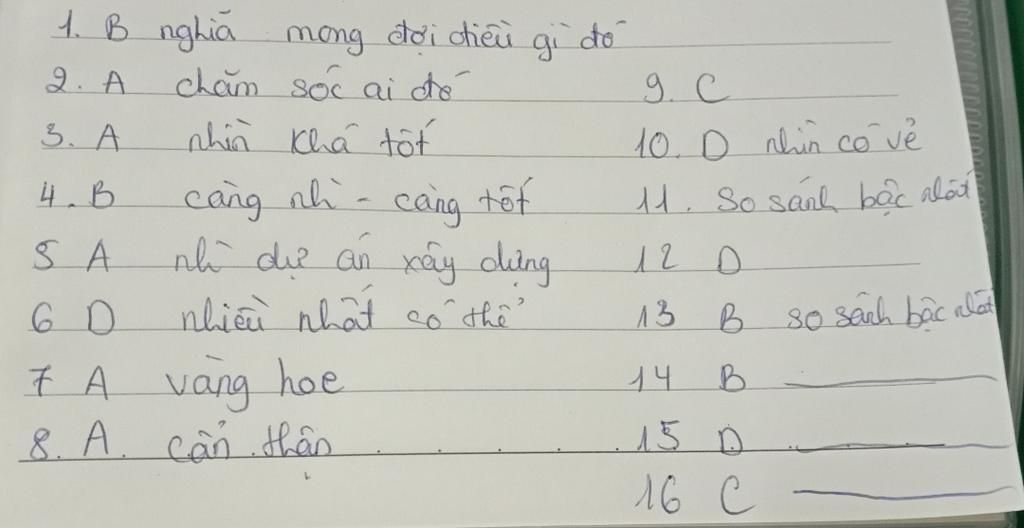 1. B nghiã mong đợi điều gì đó
2. A chăm sóc ai đó
3. A nhìn khá tốt
4. B càng nh` - càng tốt
5 A nh` dự án xây dựng
6 D nhiều nhất có thể
7 A vàng hoe
8. A. cẩn thận
9. C
10. D nhìn có vẻ
11. So sánh bậc nhất
12 D
13 B so sánh bậc nhất
14 B
15 D
16 C